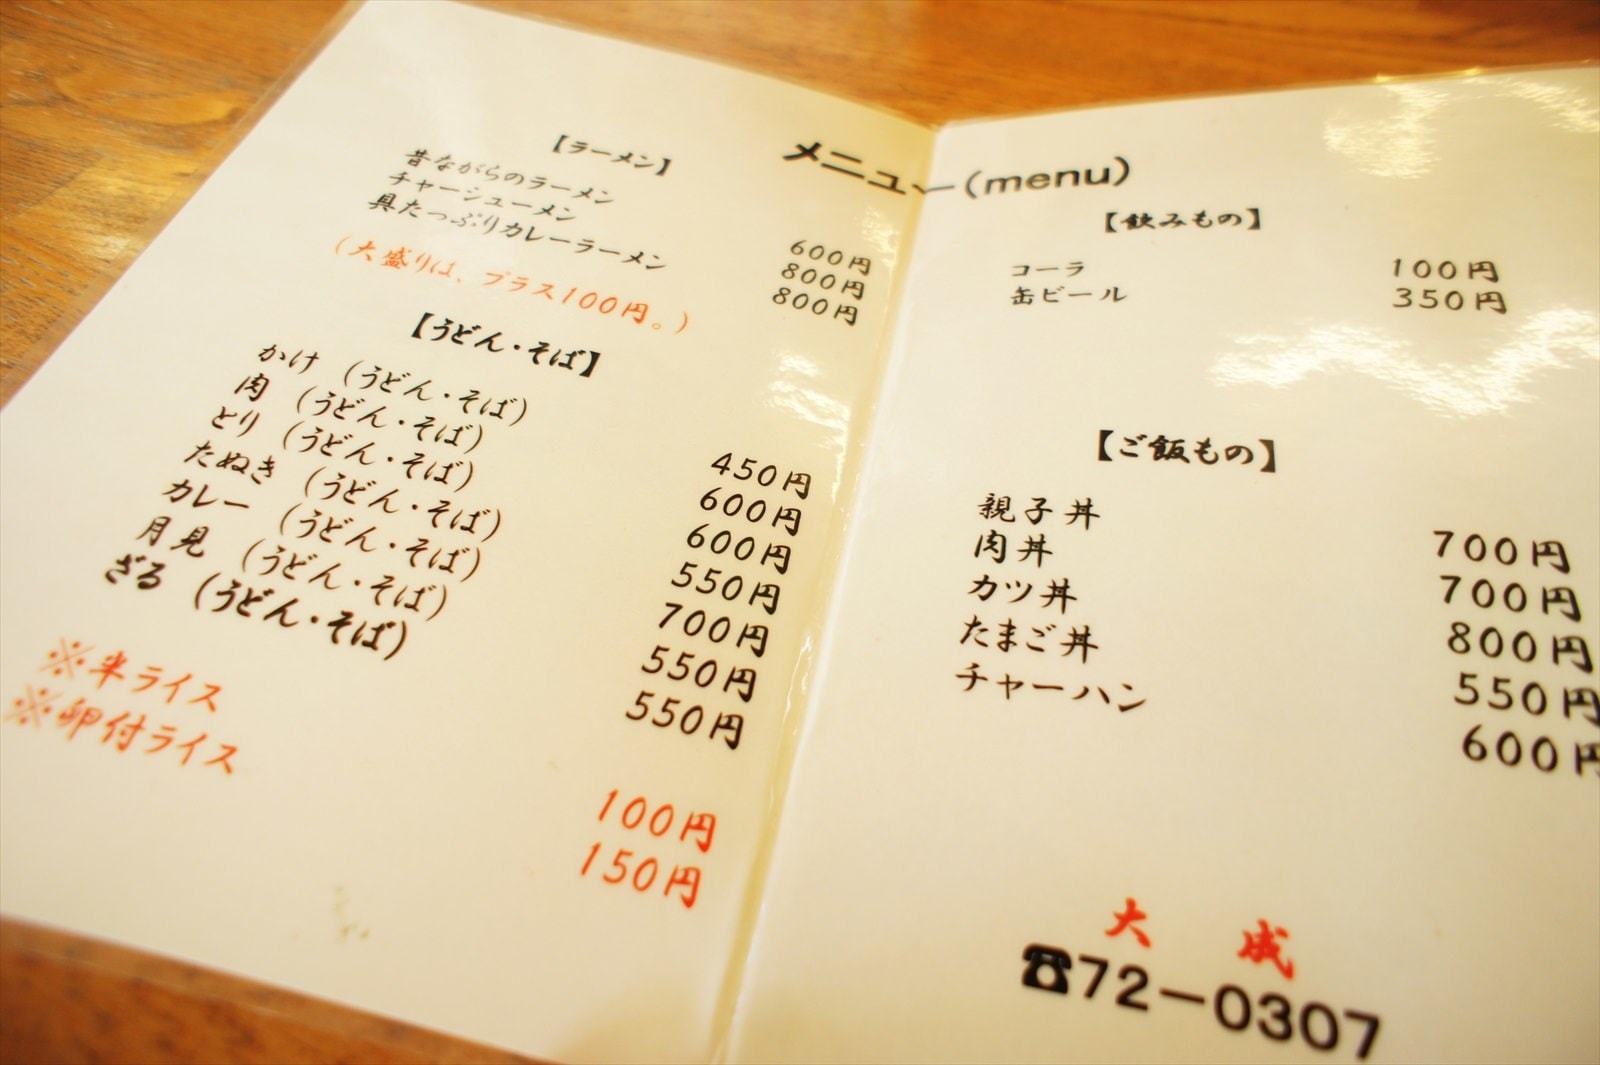 メニュー(menu)
【ラーメン】
昔ながらのラーメン 600円
チャーシューメン 800円
具たっぷりカレーラーメン 800円
(大盛りは、プラス100円。)
【うどん・そば】
かけ (うどん・そば) 450円
肉 (うどん・そば) 600円
とり (うどん・そば) 600円
たぬき (うどん・そば) 550円
カレー (うどん・そば) 700円
月見 (うどん・そば) 550円
ざる (うどん・そば) 550円
※半ライス 100円
※卵付ライス 150円
【飲みもの】
コーラ 100円
缶ビール 350円
【ご飯もの】
親子丼 700円
肉丼 700円
カツ丼 800円
たまご丼 550円
チャーハン 600円
大成
☎72-0307